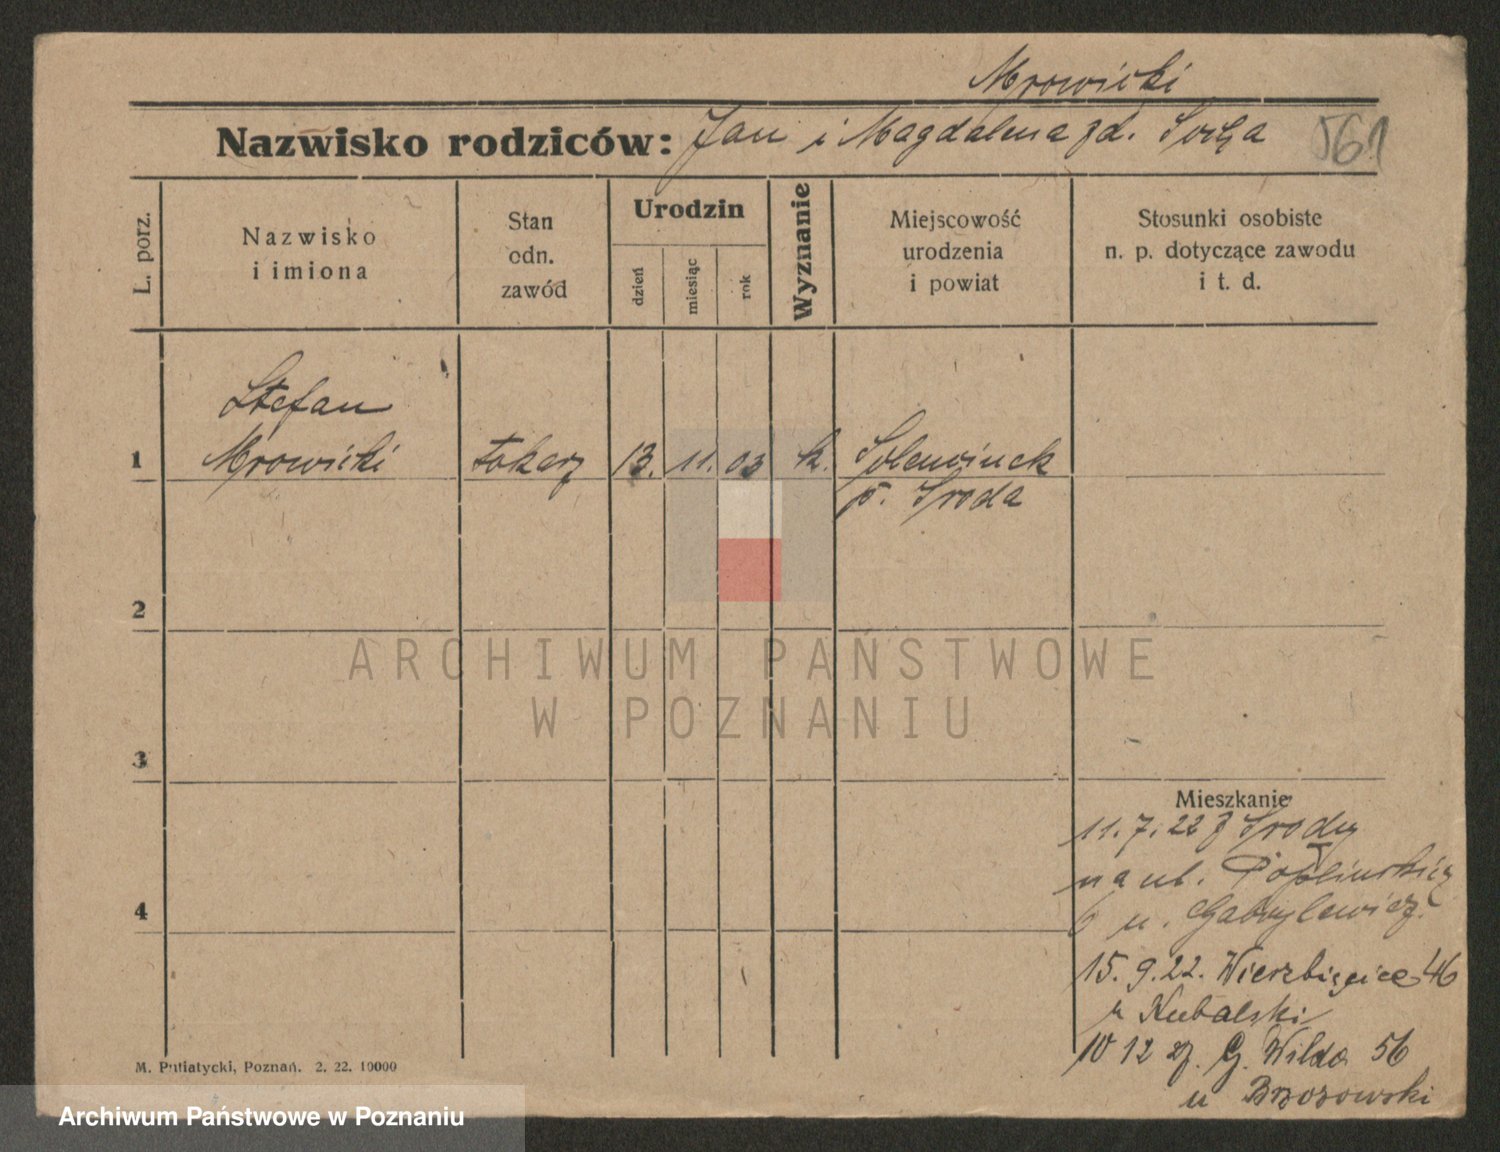 Mrowicki
Nazwisko rodziców: Jan i Magdalena zd. Socha
561
L. porz.
Nazwisko
i imiona
Stan
odn.
zawód
Urodzin
dzień
miesiąc
rok
Wyznanie
Miejscowość
urodzenia
i powiat
Stosunki osobiste
n. p. dotyczące zawodu
i t. d.
Stefan
1 Mrowicki tokarz 13. 11. 03 k.
p. Środa
2
ARCHIWUM PAŃSTWOWE
W POZNANIU
3
4
Mieszkanie
11.7.22 z Środy
na ul. Poplińskich
6 u. Gabrylewicz
15.9.22. Wierzbięcice 46
u Kubalski
10 12 G. Wilda 56
u Brzozowski
M. Putiatycki, Poznań. 2. 22. 10000
Archiwum Państwowe w Poznaniu